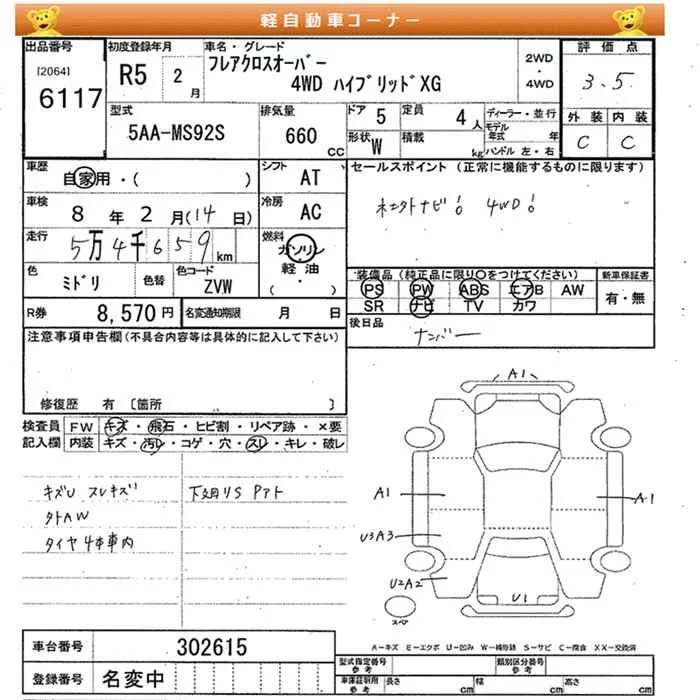 軽自動車コーナー
出品番号
[2064]
6117
初度登録年月
R5 2 月
車名・グレード
フレアクロスオーバー
4WD ハイブリッドXG
2WD
・
4WD
評価点
3.5
外装 内装
C C
型式
5AA-MS92S
排気量
660 CC
ドア 5
定員 4 人
形状 W
積載 kg
ディーラー・並行
モデル年式 年
ハンドル 左・右
車歴
自家用・( )
シフト AT
セールスポイント (正常に機能するものに限ります)
4WD!
車検
8 年 2 月(14 日)
冷房 AC
走行
5万4千659 km
燃料
ガソリン
軽油
( ・ )
色 ミドリ
色替
色コード ZVW
装備品 (純正品に限り○をつけてください)
PS PW ABS エアB AW
SR ナビ TV カワ
新車保証書
有・無
R券 8,570 円
名変通知期限 月 日
後日品
ナンバー
注意事項申告欄 (不具合内容等は具体的に記入して下さい)
修復歴 有 〔箇所 〕
検査員記入欄
FW キズ・飛石・ヒビ割・リペア跡・×要
内装 キズ・汚レ・コゲ・穴・スレ・キレ・破レ
キズU スレキズ
外AW
タイヤ4本車内
下廻りS
A1
A1
A1
U3A3
U2A2
U1
スペア
A=キズ E=エクボ U=凹み W=補修跡 S=サビ C=腐食 XX=交換済
車台番号 302615
登録番号 名変中
型式指定番号 参考
類別区分番号 参考
車庫証明用 参考
長さ cm
幅 cm
高さ cm